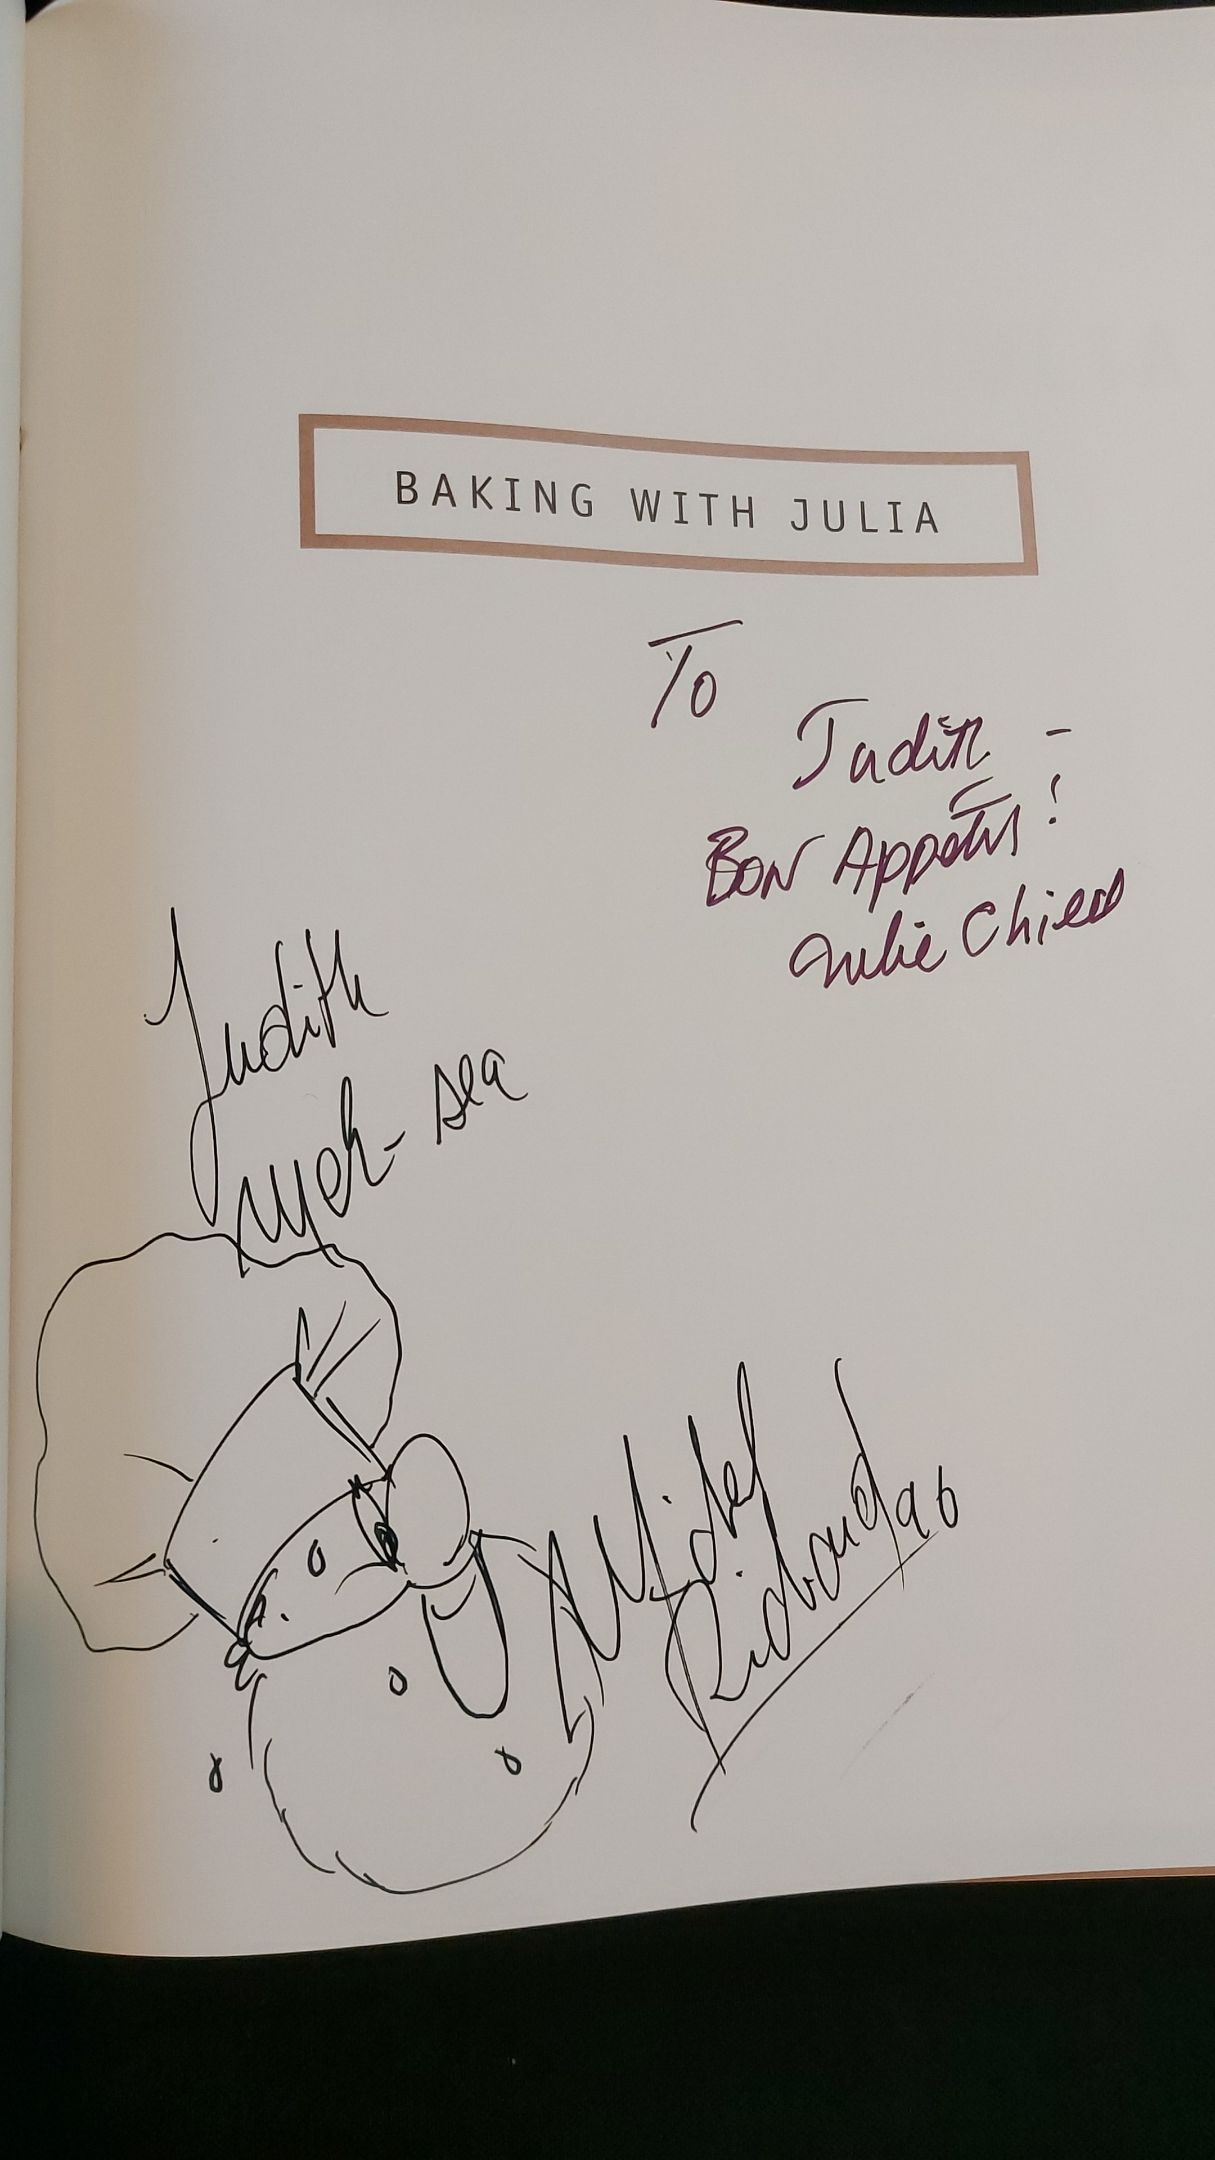 BAKING WITH JULIA
To
Judith –
Bon Appétit!
Julia Child
Judith
Michel
Richard 96